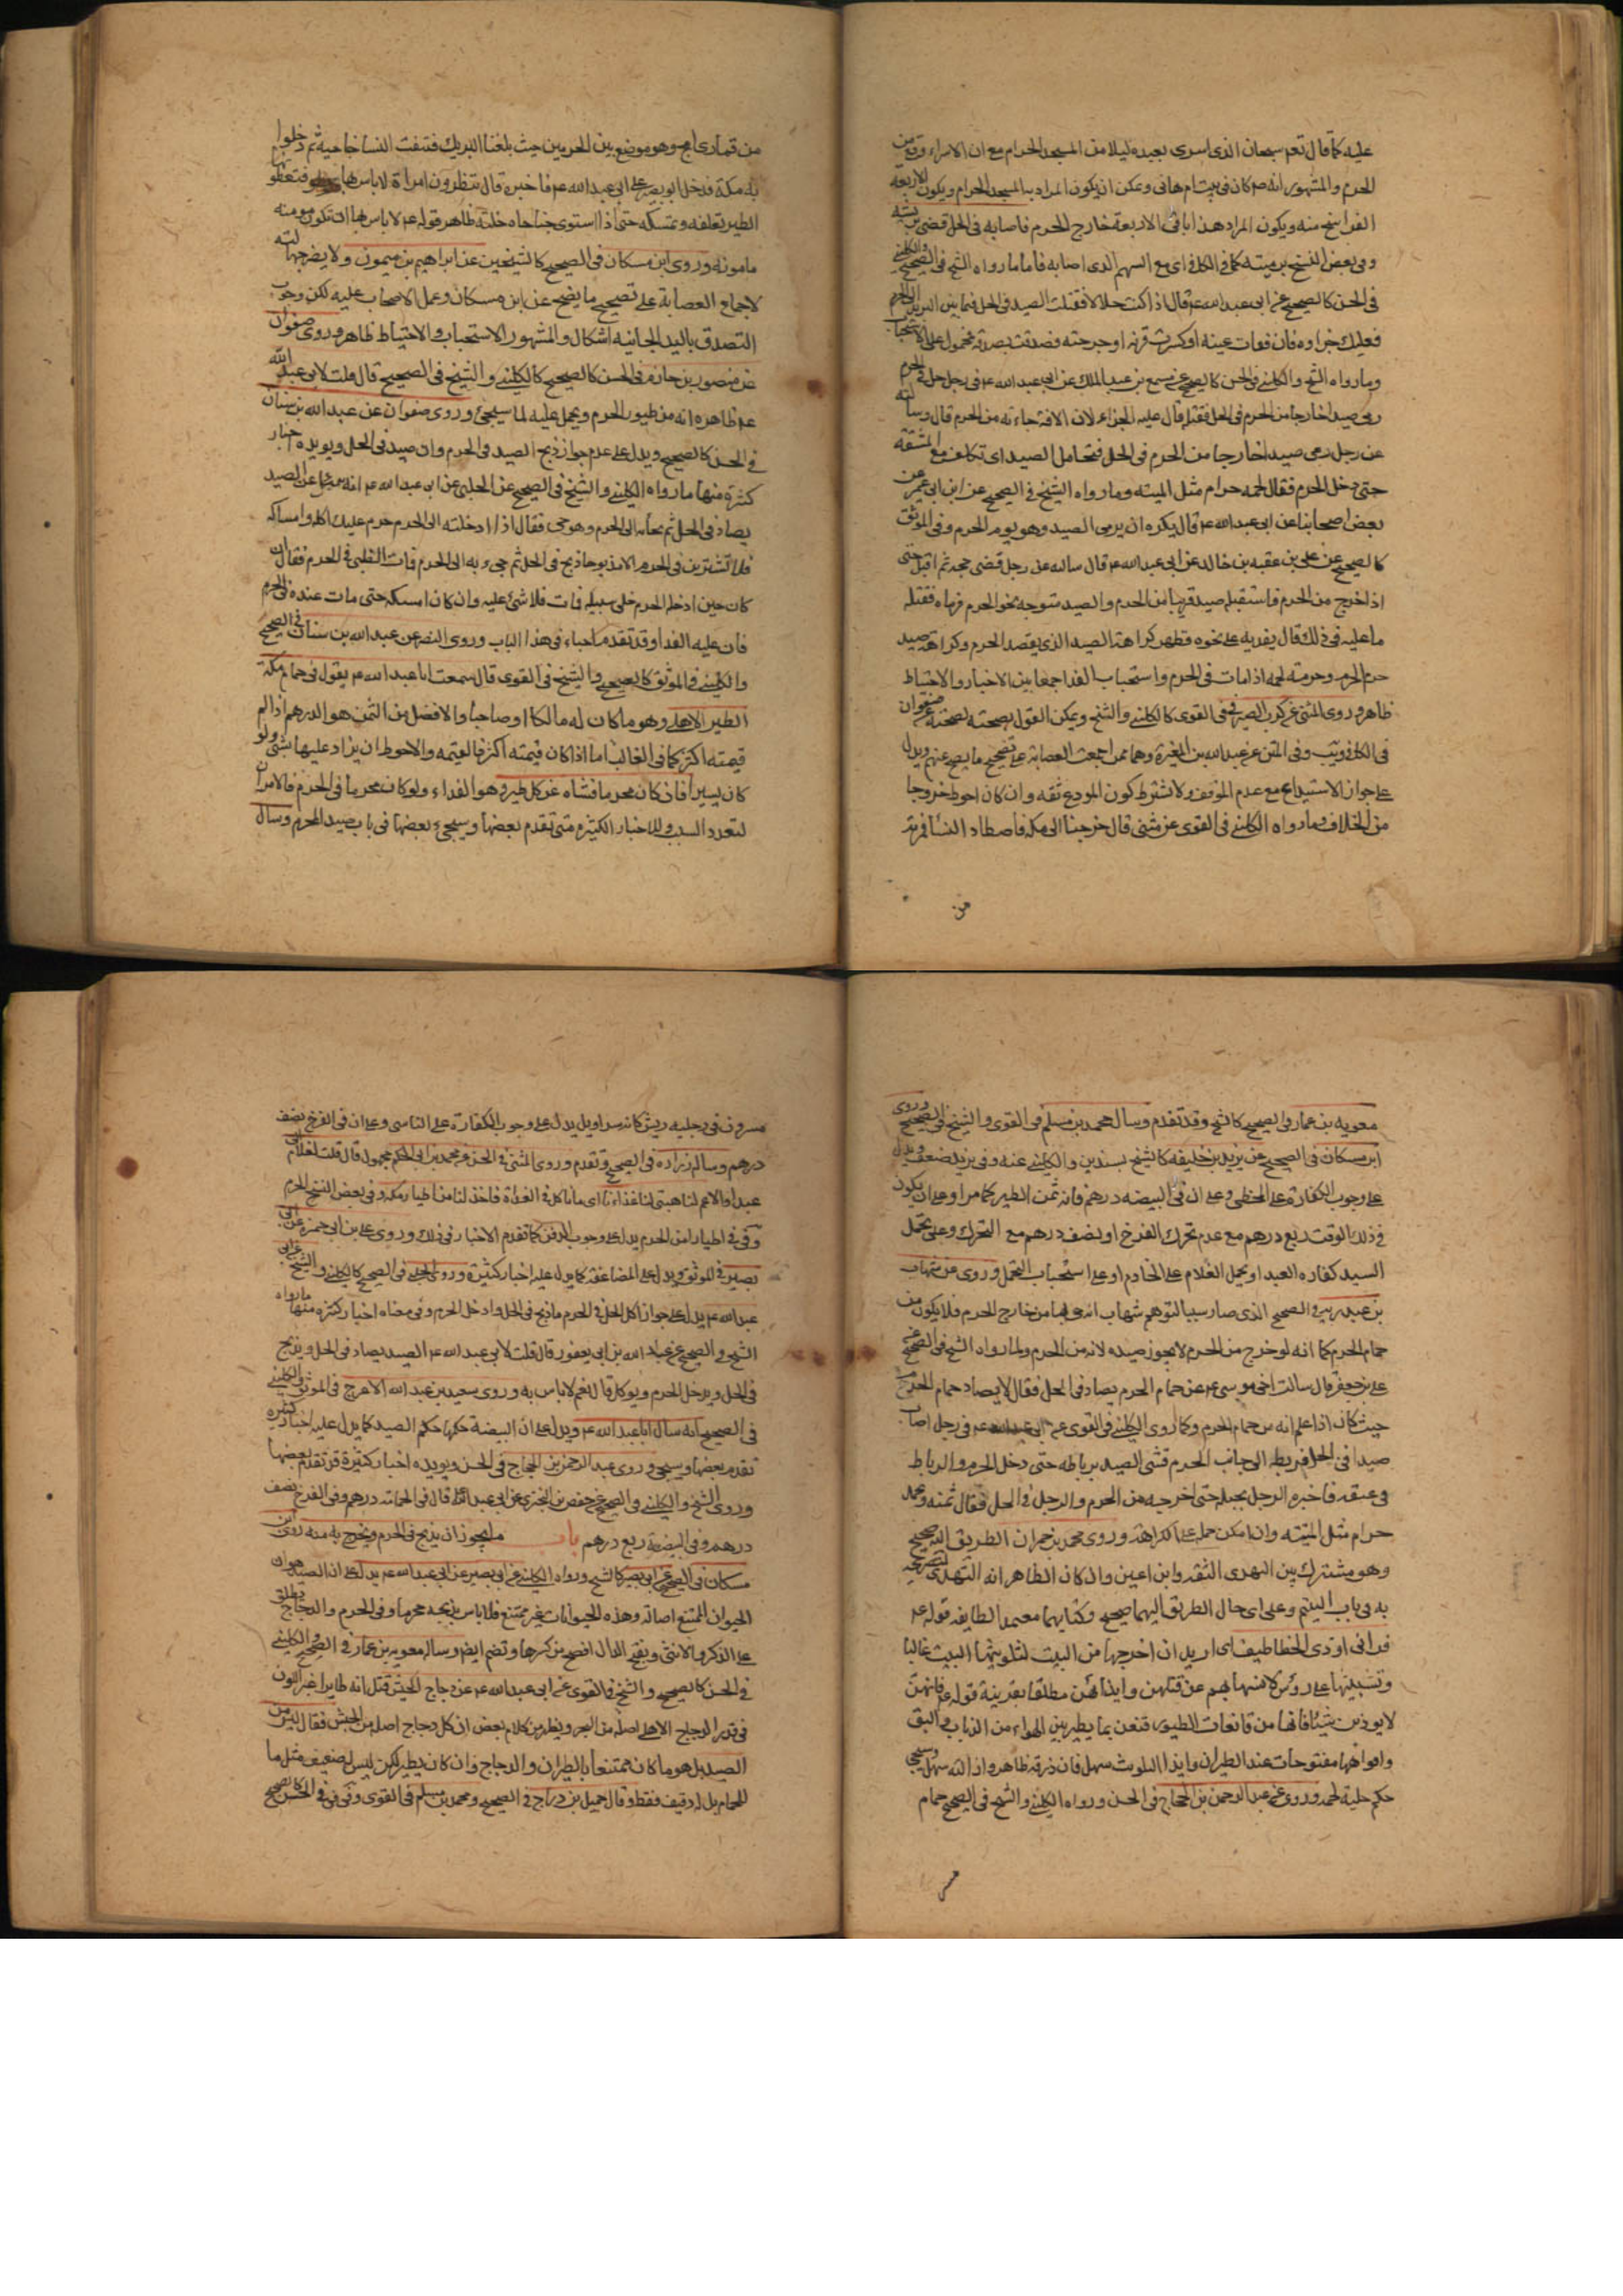 عليه كما قال تعم سبحان الذى اسرى بعبده ليلا من المسجد الحرام مع ان الاسراء وقع من
الحرم والمشهور انه ص كان فى بيت ام هانى ويمكن ان يكون المراد به المسجد الحرام ويكون الاربعة
الفراسخ منه ويكون المراد هذا باقى الاربعة خارج الحرم فاصابه فى الحل
وفى بعض النسخ برميته كما فى الكافى اى مع السهم الذى اصابه فاما ما رواه الشيخ فى الصحيح والكلينى
فى الحسن كالصحيح عن ابى عبد الله ع قال اذا كنت حلالا فقتلت الصيد فى الحل فيما بين البريد الى الحرم
فعليك جزاوه فان فقات عينه او كسرت قرنه او جرحته فصدقت بصدقة فمحمول على الاستحباب
وما رواه الشيخ والكلينى فى الحسن كالصحيح عن مسمع بن عبد الملك عن ابى عبد الله ع فى رجل حل فى الحرم
رمى صيدا خارجا من الحرم فى الحل فقتله قال عليه الجزاء لان الافة جاءته من الحرم قال وسالته
عن رجل رمى صيدا خارجا من الحرم فى الحل فتحامل الصيد اى تكلف مع المشقة
حتى دخل الحرم فقال لحمه حرام مثل الميتة وما رواه الشيخ فى الصحيح عن ابن ابى عمير عن
بعض اصحابنا عن ابى عبد الله ع قال يكره ان يرمى الصيد وهو يوم الحرم وفى الموثق
كالصحيح عن على بن عقبه بن خالد عن ابى عبد الله ع قال سالته عن رجل قضى حجه ثم اقبل حتى
اذا خرج من الحرم فاستقبله صيد قريبا من الحرم والصيد متوجه نحو الحرم فرماه فقتله
ما عليه فى ذلك قال يفديه على نحوه فظهر كراهة الصيد الذى يقصد الحرم وكراهة صيد
حرم الحرم وحرمة لحمه اذا مات فى الحرم واستحباب الفدا جمعا بين الاخبار والاحتياط
ظاهر وروى المثنى عن كرب الصيرفى فى القوى كالكلينى والشيخ ويمكن القول بصحته لصحته عن صفوان
فى الكافى ويب وفى المتن عن عبد الله بن المغيرة وهما ممن اجمعت العصابة على تصحيح ما يصح عنهم ويدل
على جواز الاستيداع مع عدم الموقف ولا شترط كون المودع ثقه وان كان احوط خروجا
من الخلاف وما رواه الكلينى فى القوى عن مثنى قال خرجنا الى مكة فاصطاد النسا قمرية
من
من قمارى امج وهو موضع بين الحرمين حيث بلغنا البريد فنتفت النسا جناحيه ثم دخلوا
به مكة فدخل ابو بصير على ابى عبد الله ع فاخبره قال تنظرون امراة لا باس بها فتعطونها
الطير تعلفه وتمسكه حتى اذا استوى جناحاه خلته ظاهر قوله ع لا باس بها ان تكون مومنه
مامونه وروى ابن مسكان فى الصحيح كالشيخين عن ابراهيم بن ميمون ولا يضر جهالته
لاجماع العصابة على تصحيح ما يصح عن ابن مسكان وعمل الاصحاب عليه لكن وجوب
التصدق باليد الجانية اشكال والمشهور الاستحباب والاحتياط ظاهر وروى صفوان
عن منصور بن حازم فى الحسن كالصحيح كالكلينى والشيخ فى الصحيح قال قلت لابى عبد الله
ع ظاهره انه من طيور الحرم ويحمل عليه لما سيجئ وروى صفوان عن عبد الله بن سنان
فى الحسن كالصحيح ويدل على عدم جواز ذبح الصيد فى الحرم وان صيد فى الحل ويويده اخبار
كثيرة منها ما رواه الكلينى والشيخ فى الصحيح عن الحلبى عن ابى عبد الله ع انه سئل عن الصيد
يصاد فى الحل ثم يجاء به الى الحرم وهو حى فقال اذا ادخلته الى الحرم حرم عليك اكله وامساكه
فلا تشترين فى الحرم الا مذبوحا ذبح فى الحل ثم جىء به الى الحرم فمات الظبى فى الحرم فقال ان
كان حين ادخله الحرم خلى سبيله فمات فلا شئ عليه وان كان امسكه حتى مات عنده فى الحرم
فان عليه الفدا وقد تقدم اخباء فى هذا الباب وروى النضر عن عبد الله بن سنان فى الصحيح
والكلينى فى الموثق كالصحيح والشيخ فى القوى قال سمعت ابا عبد الله ع يقول فى حمام مكة
الطير الاهلى وهو ما كان له مالكا او صاحبا والافضل من الثمن هو الدرهم اذا لم
قيمته اكثر كما فى الغالب اما اذا كان قيمته اكثر فالقيمه والاحوط ان يزاد عليها بشئ ولو
كان يسيرا فان كان محرما فشاة عن كل طير وهو الفداء ولو كان محرما فى الحرم فالامران
لتعدد السبب وللاخبار الكثيره متى تقدم بعضها وسيجئ بعضها فى باب صيد المحرم وسال
معويه بن عمار فى الصحيح كالشيخ وقد تقدم وسال محمد بن مسلم فى القوى والشيخ فى الصحيح وروى
ابن مسكان فى الصحيح عن يزيد بن خليفه كالشيخ بسندين والكلينى عنه وفى يزيد ضعف ويدل
على وجوب الكفارة على المخطى وعلى ان فى البيضه درهم فانه ثمن الطير كما مر او على ان يكون
فى ذلك الوقت ربع درهم مع عدم تحرك الفرخ او نصف درهم مع التحرك وعلى تحمل
السيد كفاره العبد او يحمل الغلام على الخادم او على استحباب التحمل وروى عن شهاب
بن عبد ربه فى الصحيح الذى صار سببا لتوهم شهاب انه فى لما من خارج الحرم فلا يكون من
حمام الحرم كما انه لو خرج من الحرم لا يجوز صيده لانه من الحرم ولما رواه الشيخ فى الصحيح عن
على بن جعفر قال سالت اخى موسى ع عن حمام الحرم يصاد فى الحل فقال لا يصاد حمام الحرم
حيث كان اذا علم انه من حمام الحرم وكما روى الكلينى فى القوى عن ابى عبد الله ع فى رجل اصاب
صيدا فى الحل فربطه الى جانب الحرم فمشى الصيد برباطه حتى دخل الحرم والرباط
فى عنقه فاجتره الرجل بحبله حتى اخرجه من الحرم والرجل فى الحل فقال ثمنه ولحمه
حرام مثل الميته وان امكن حمله على الكراهة وروى محمد بن حمران الطريق اليه صحيح
وهو مشترك بين النهدى الثقه وابن اعين وان كان الظاهر انه النهدى لتصريحه
به فى باب التيمم وعلى اى حال الطريق اليهما صحيح وكتابهما معتمد الطايفه قوله ع
فرانى اوذى الخطاطيف اى اريد ان اخرجها من البيت لتلويثها البيت غالبا
وتشبيتها على روس كلا منهما نهم عن قتلهن وايذائهن مطلقا بقرينة قوله ع فانهن
لا يوذين شيئا فانها من قانعات الطيور قنعن بما يطير بين الهواء من الذباب والبق
وافواهها مفتوحات عند الطيران وايذا التلويث سهل فان ذرقه ظاهر وازالته سهل وسيجئ
حكم حلية لحمه وروى عن عبد الرحمن بن الحجاج فى الحسن ورواه الكلينى والشيخ فى الصحيح حمام
مسرول فى رجليه ريش كانه سراويل يدل على وجوب الكفارة على الناسى وعلى ان فى الفرخ نصف
درهم وساله زراره فى الصحيح وتقدم وروى المثنى فى الحسن عن محمد بن ابى الحكم مجهول قال قلت لغلام
عبد او الاعم لنا هيئ لنا غداءنا اى ما ناكل فى الغداة فاخذ لنا من اطيار مكه وفى بعض النسخ الحرم
وفى فى اطيارا من الحرم يدل على وجوب الدفن كما تقدم الاخبار فى ذلك وروى على بن ابى حمزه عن ابى
بصير فى الموثق ويدل على المضاعفة كما يدل عليه اخبار كثيرة وروى الحلبى فى الصحيح كالكلينى والشيخ عن ابى
عبد الله ع يدل على جواز اكل المحل فى الحرم ما ذبح فى الحل وادخل الحرم وفى معناه اخبار كثيره منها ما رواه
الشيخ فى الصحيح عن عبد الله بن ابى يعفور قال قلت لابى عبد الله ع الصيد يصاد فى الحل ويذبح
فى الحل ويدخل الحرم ويوكل قال نعم لا باس به وروى سعيد بن عبد الله الاعرج فى الموثق والكلينى
فى الصحيح انه سال ابا عبد الله ع ويدل على ان البيضة حكمها حكم الصيد كما يدل عليه اخبار كثيره
تقدم بعضها وسيجئ وروى عبد الرحمن بن الحجاج فى الحسن ويويده اخبار كثيرة قد تقدم بعضها
وروى الشيخ والكلينى فى الصحيح عن حفص بن البخترى عن ابى عبد الله ع قال فى الحمامه درهم وفى الفرخ نصف
درهم وفى البيضة ربع درهم باب ما يجوز ان يذبح فى الحرم ويخرج به منه روى ابن
مسكان فى الصحيح عن ابى بصير كالشيخ ورواه الكلينى عن ابى بصير عن ابى عبد الله ع يدل على ان الصيد هو ان
الحيوان الممتنع اصالة وهذه الحيوانات غير ممتنع فلا باس بذبحه محرما وفى الحرم والدجاج يطلق
على الذكر والانثى وبفتح الدال افصح من كسرها وتضم ايضا وساله معويه بن عمار فى الصحيح والكلينى
فى الحسن كالصحيح والشيخ فى القوى عن ابى عبد الله ع عن دجاج الحبش قيل انه طاير اغبر اللون
فى قدر الدجاج الاهلى اصله من البحر ويظهر من كلام بعض ان كل دجاج اصله من الحبش فقال ليس من
الصيد بل هو ما كان ممتنعا بالطيران والدجاج وان كان يطير لكن ليس لضعيف مثل ما
للحمام بل له دفيف فقط وقال جميل بن دراج فى الصحيح ومحمد بن مسلم فى القوى وفى فى الحسن كالصحيح